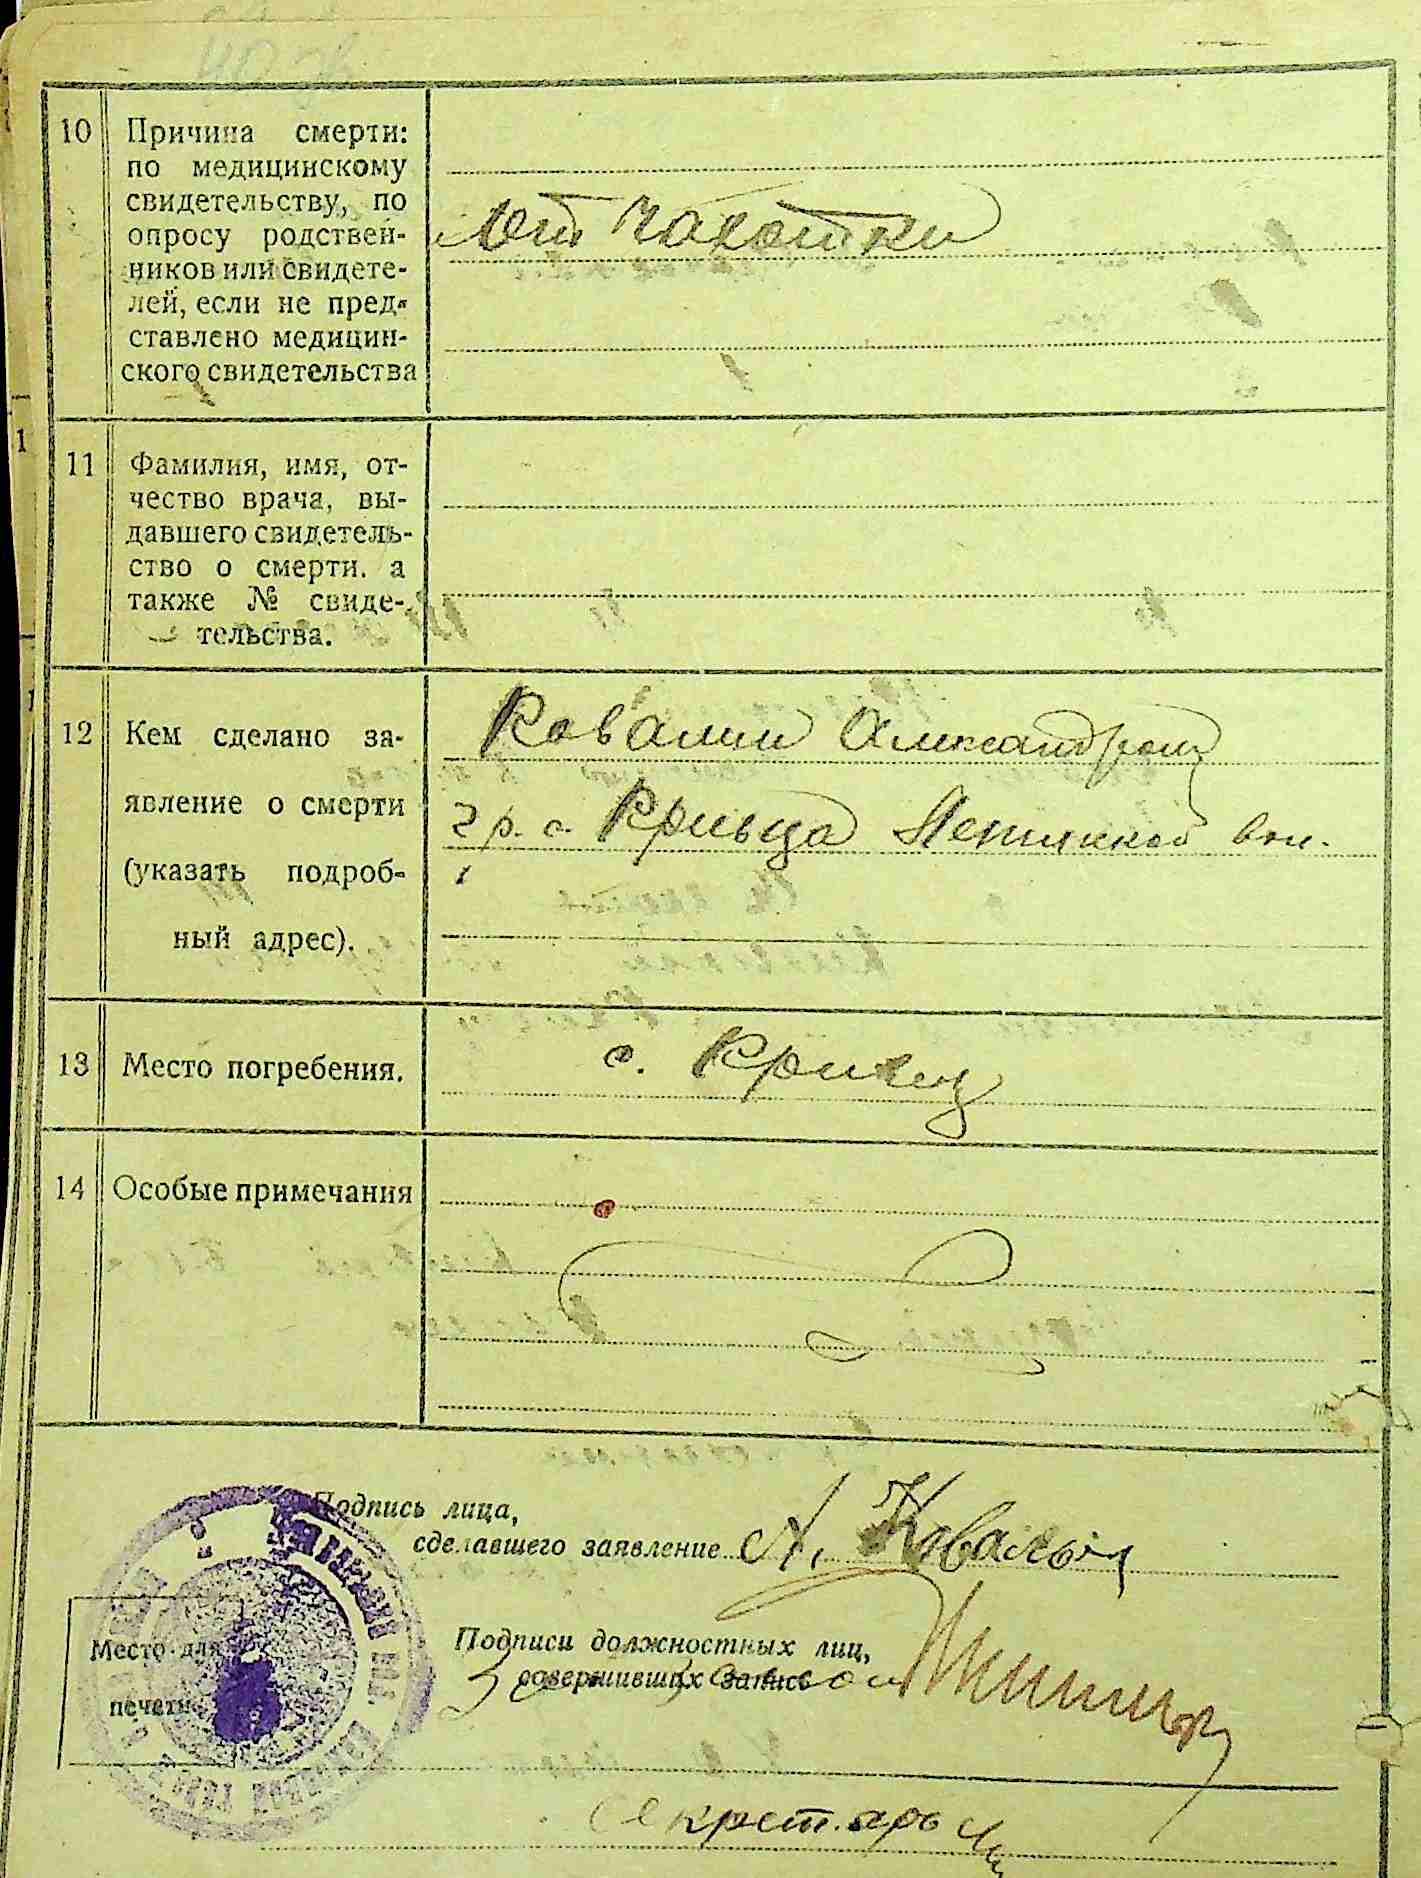 10 Причина смерти:
по медицинскому
свидетельству, по
опросу родствен-
ников или свидете-
лей, если не пред-
ставлено медицин-
ского свидетельства
от чахотки
11 Фамилия, имя, от-
чество врача, вы-
давшего свидетель-
ство о смерти. а
также № свиде-
тельства.
12 Кем сделано за-
явление о смерти
(указать подроб-
ный адрес).
Александром
гр. с. Крывца вол.
13 Место погребения.
с.
14 Особые примечания
Подпись лица,
сделавшего заявление А.
Место для
печати
Подписи должностных лиц,
совершивших запись
секретарь